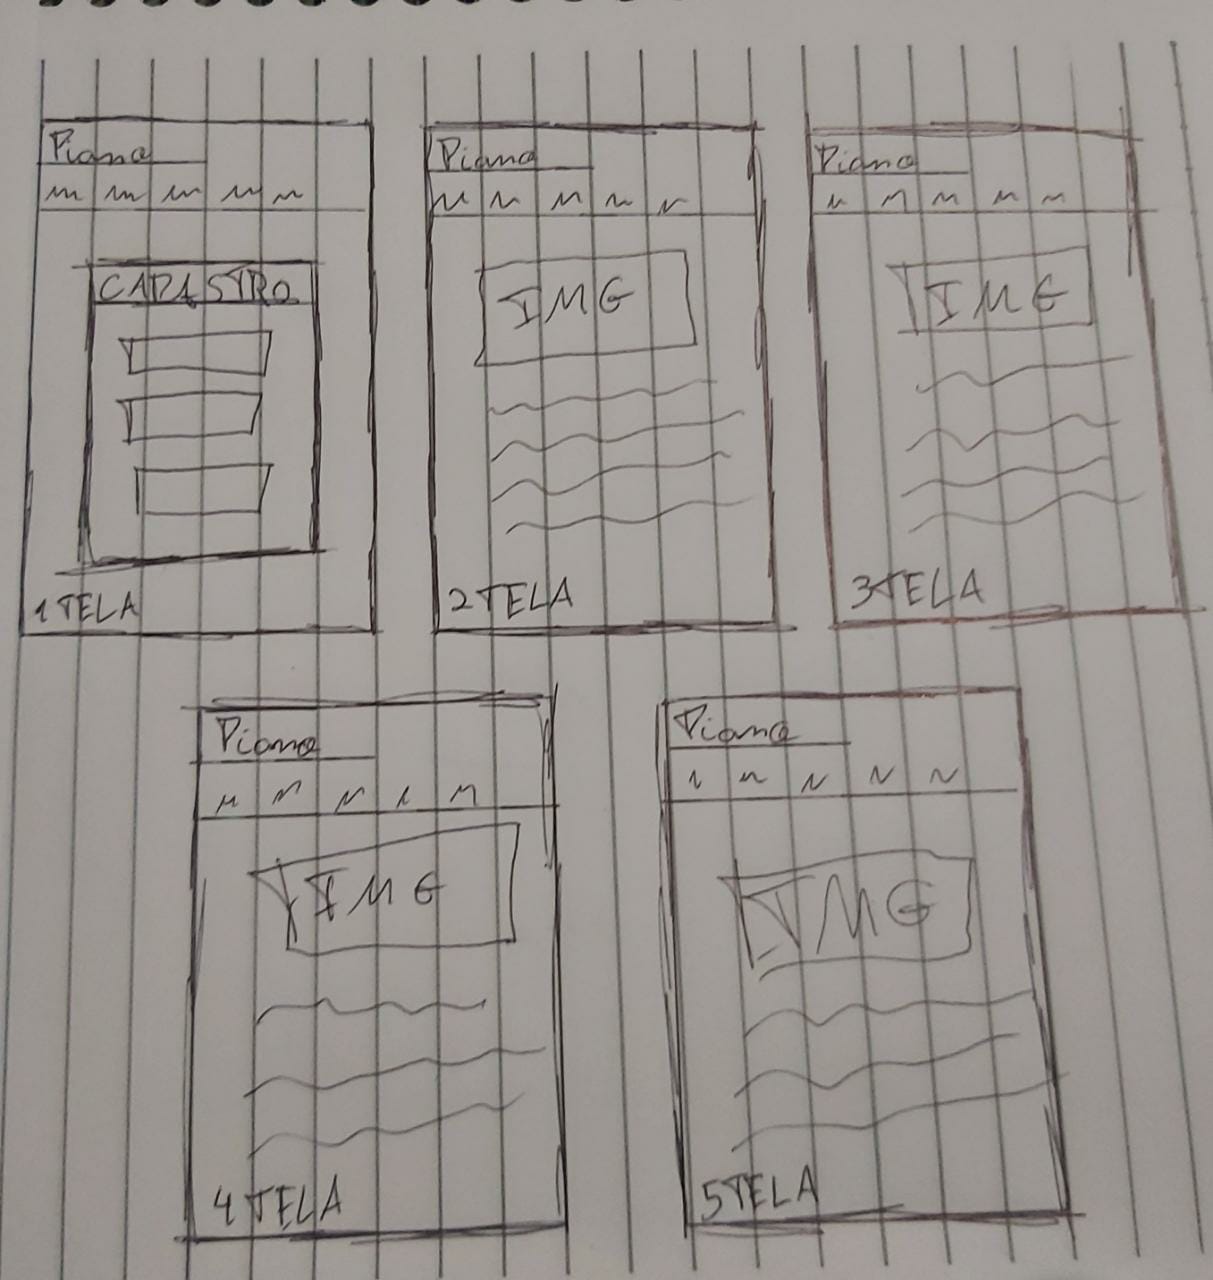 Piano
CADASTRO
1 TELA
Piano
IMG
2 TELA
Piano
IMG
3 TELA
Piano
IMG
4 TELA
Piano
IMG
5 TELA